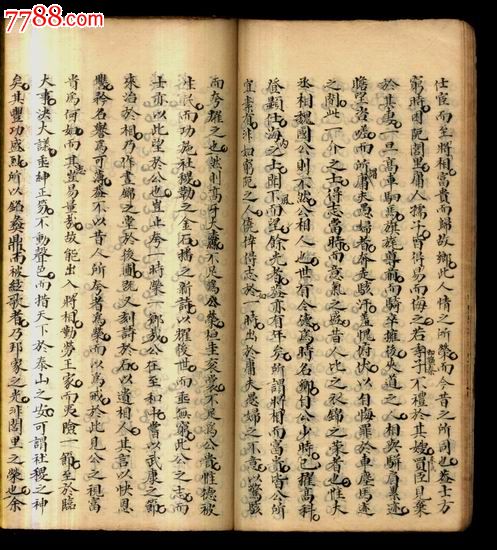 7788.com
仕宦而至將相富貴而歸故鄉此人情之所榮而今昔之所同也蓋士方
窮時困阨閭里庸人孺子皆得易而侮之若季子不禮於其嫂買臣見棄
於其妻一旦高車駟馬旗旄導前而騎卒擁後夾道之人相與駢肩累迹
瞻望咨嗟而所謂庸夫愚婦者奔走駭汗羞愧俯伏以自悔罪於車塵馬迹
之間此一介之士得志當時而意氣之盛昔人比之衣錦之榮者也惟大
丞相魏國公則不然公相人也世有令德為時名卿自公少時已擢高科
登顯仕海內之士聞下風而望餘光者蓋亦有年矣所謂將相而富貴皆公所
宜素有非如窮阨之人僥倖得志於一時出於庸夫愚婦之不意以驚駭
而夸耀之也然則高牙大纛不足為公榮桓圭袞裳不足為公貴惟德被
生民而功施社稷勒之金石播之新詩以耀後世而垂無窮此公之志而
士亦以此望於公也豈止夸一時榮一鄉哉公在至和中嘗以武康之節
來治於相乃作晝錦之堂於後圃既又刻詩於石以遺相人其言以快恩
讐矜名譽為可薄蓋不以昔人所夸者為榮而以為戒於此見公之視富
貴為何如而其志豈易量哉故能出入將相勤勞王家而夷險一節至於臨
大事決大議垂紳正笏不動聲色而措天下於泰山之安可謂社稷之臣
矣其豐功盛烈所以銘彝鼎而被絃歌者乃邦家之光非閭里之榮也余